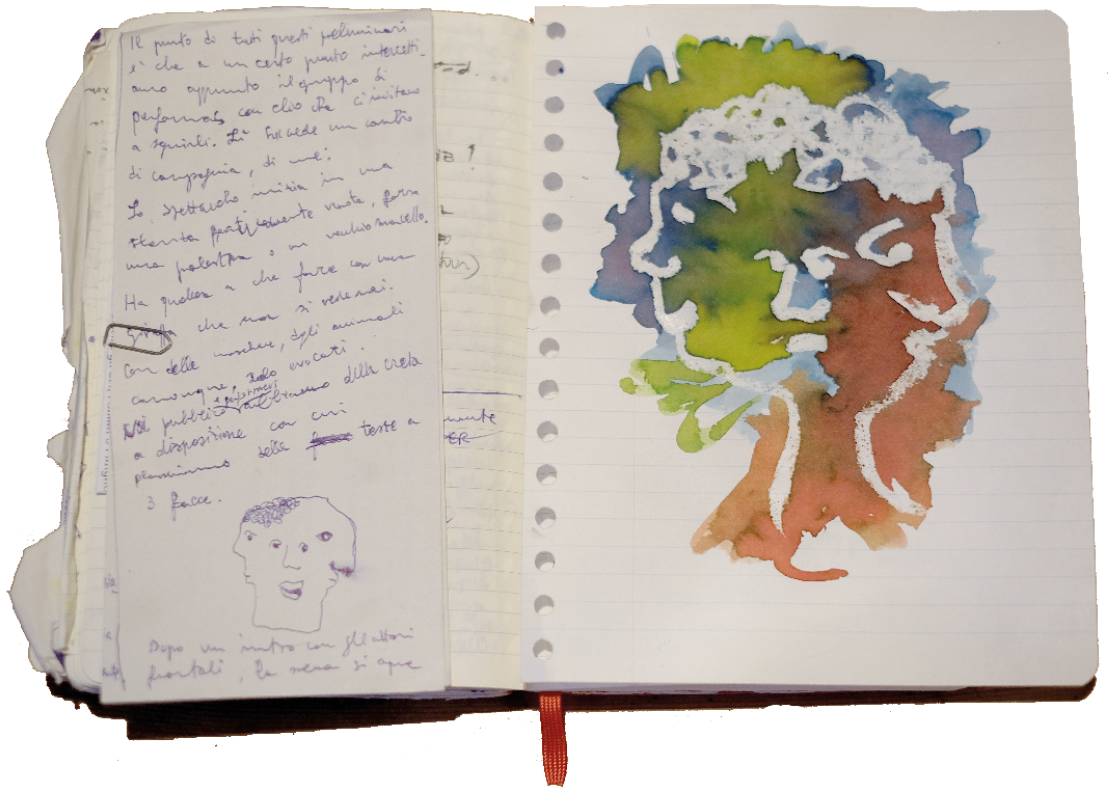 Il punto di tutti questi preliminari
è che a un certo punto intercetti-
amo appunto il gruppo di
performers con clio che ci invitano
a seguirli. Lì succede un cambio
di compagnia, di me.
Lo spettacolo inizia in una
stanza praticamente vuota, forse
una palestra o un vecchio macello.
Ha qualcosa a che fare con una
giraffa che non si vede mai.
Con delle maschere, degli animali
comunque solo evocati.
Noi pubblico e performers abbiamo della creta
a disposizione con cui
plasmiamo delle teste a
3 facce.
Dopo un intro con gli attori
frontali, la scena si apre
mente
ER